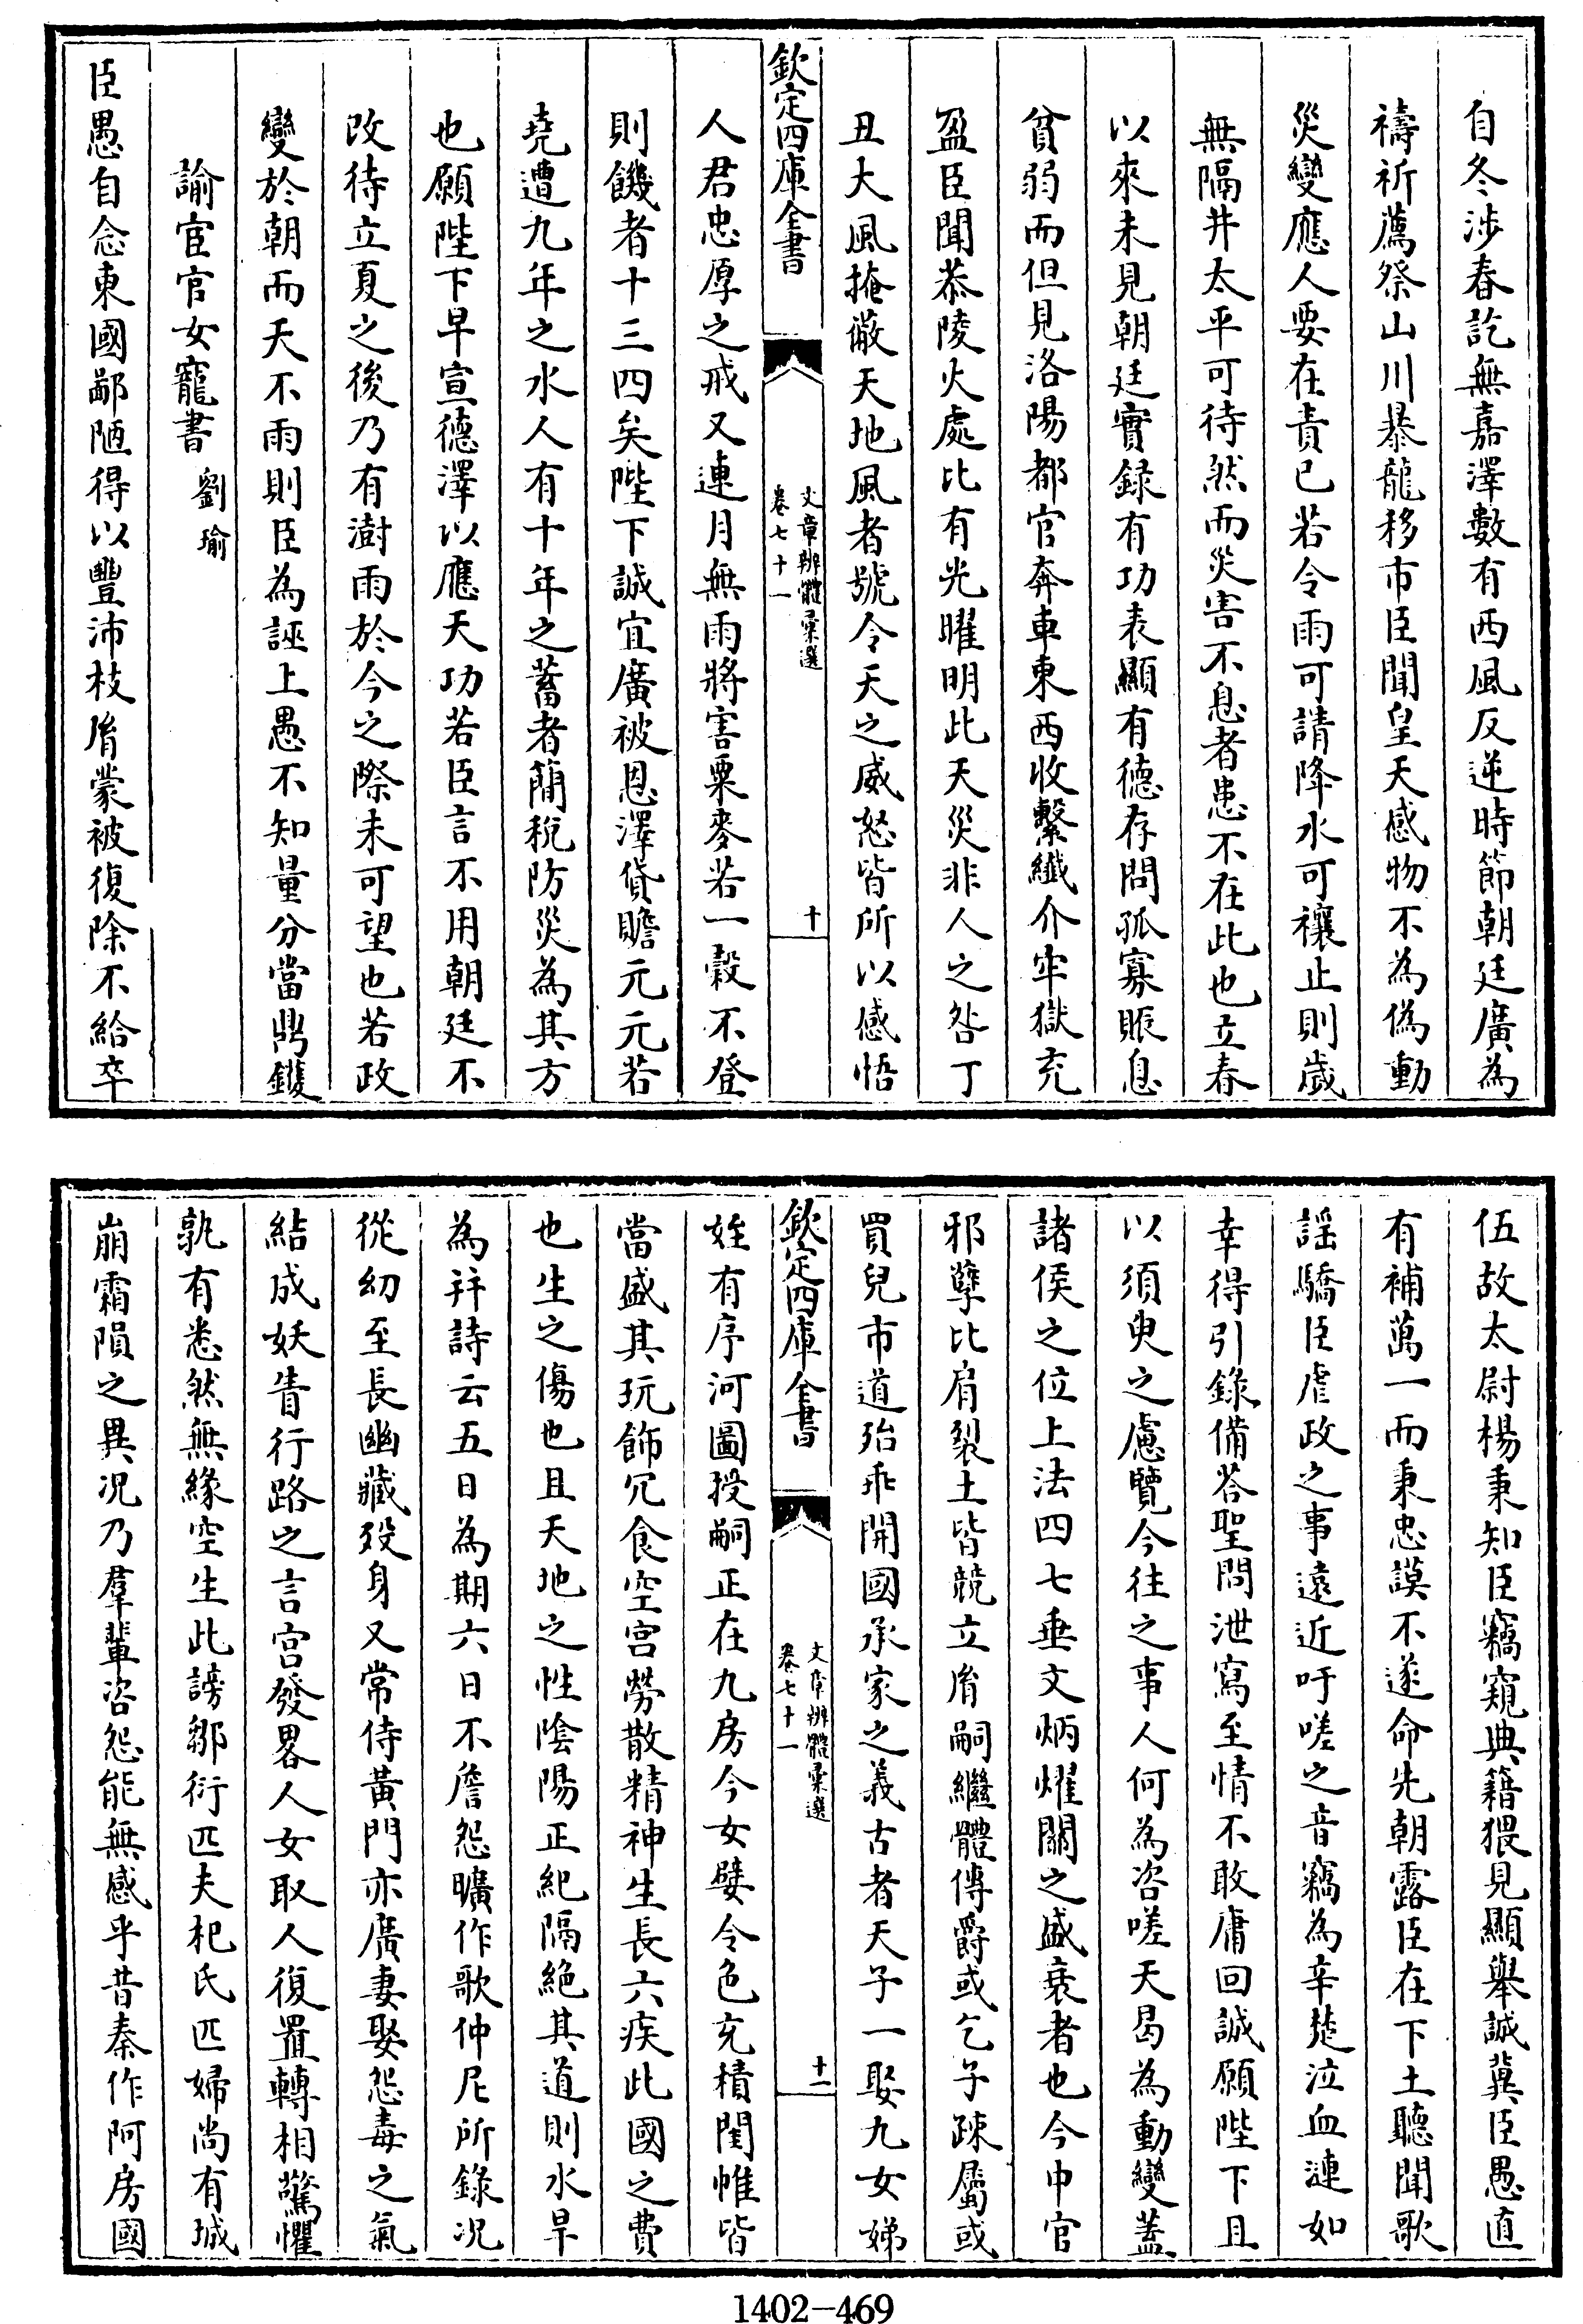 自冬涉春訖無嘉澤數有西風反逆時節朝廷廣為
禱祈薦祭山川暴龍移市臣聞皇天感物不為偽動
災變應人要在責已若令雨可請降水可禳止則歲
無隔并太平可待然而災害不息者患不在此也立春
以來未見朝廷實錄有功表顯有德存問孤寡賑息
貧弱而但見洛陽都官奔車東西收繫纖介牢獄充
盈臣聞恭陵火處比有光曜明此天災非人之咎丁
丑大風掩蔽天地風者號令天之威怒皆所以感悟
欽定四庫全書
文章辨體彙選
卷七十一
十
人君忠厚之戒又連月無雨將害粟麥若一穀不登
則饑者十三四矣陛下誠宜廣被恩澤貸贍元元若
堯遭九年之水人有十年之蓄者簡稅防災為其方
也願陛下早宣德澤以應天功若臣言不用朝廷不
改待立夏之後乃有澍雨於今之際未可望也若政
變於朝而天不雨則臣為誣上愚不知量分當鼎鑊
諭宦官女寵書 劉瑜
臣愚自念東國鄙陋得以豐沛枝胤蒙被復除不給卒
伍故太尉楊秉知臣竊窺典籍猥見顯舉誠冀臣愚直
有補萬一而秉忠謨不遂命先朝露臣在下土聽聞歌
謡驕臣虐政之事遠近吁嗟之音竊為辛楚泣血漣如
幸得引錄備荅聖問泄寫至情不敢庸回誠願陛下且
以須臾之慮覽今往之事人何為咨嗟天曷為動變蓋
諸侯之位上法四七垂文炳燿關之盛衰者也今中官
邪孽比肩裂土皆競立胤嗣繼體傳爵或乞子疎屬或
買兒市道殆乖開國承家之義古者天子一娶九女娣
欽定四庫全書
文章辨體彙選
卷七十一
十一
姪有序河圖授嗣正在九房今女嬖令色充積閨帷皆
當盛其玩飾冗食空宮勞散精神生長六疾此國之費
也生之傷也且天地之性陰陽正紀隔絶其道則水旱
為并詩云五日為期六日不詹怨曠作歌仲尼所錄況
從幼至長幽藏歿身又常侍黃門亦廣妻娶怨毒之氣
結成妖眚行路之言官發畧人女取人復置轉相驚懼
孰有悉然無緣空生此謗鄒衍匹夫杞氏匹婦尚有城
崩霜隕之異况乃羣輩咨怨能無感乎昔秦作阿房國
1402-469